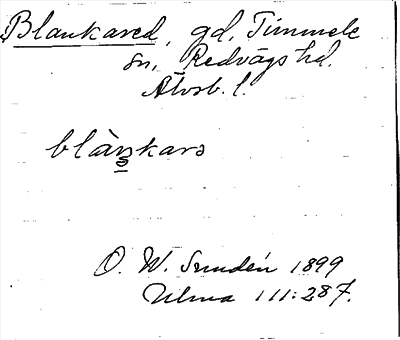 Blankared, gd, Timmele
sn, Redvägs hd.
Älvsb. l.
blànkarə
O. W. Sundén 1899
Ulma 111:287.